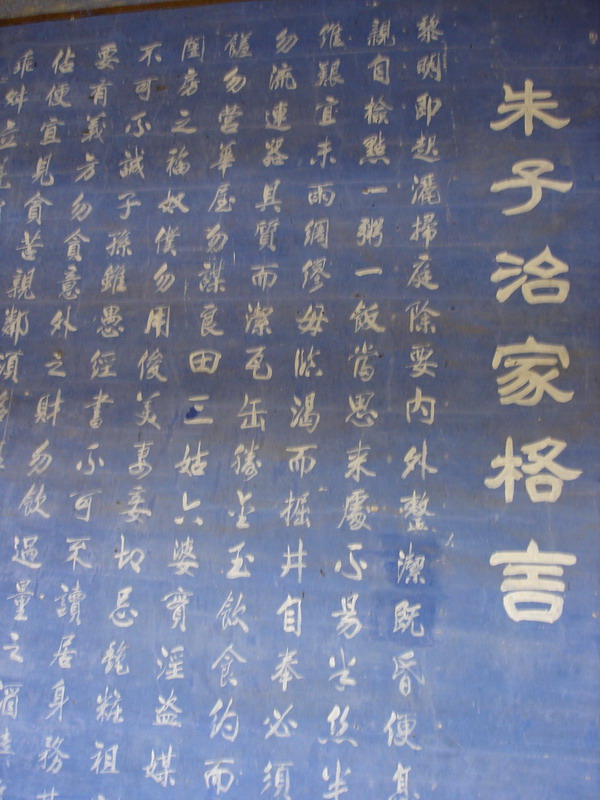 朱子治家格言
黎明即起灑掃庭除要內外整潔既昏便息
親自檢點一粥一飯當思來處不易半絲半
維艱宜未雨綢繆毋臨渴而掘井自奉必須
勿流連器具質而潔瓦缶勝金玉飲食約而
饈勿營華屋勿謀良田三姑六婆實淫盜媒
閨房之福奴僕勿用俊美妻妾切忌艷粧祖
不可不誠子孫雖愚經書不可不讀居身務
要有義方勿貪意外之財勿飲過量之酒
佔便宜見貧苦親鄰須
乖舛立見